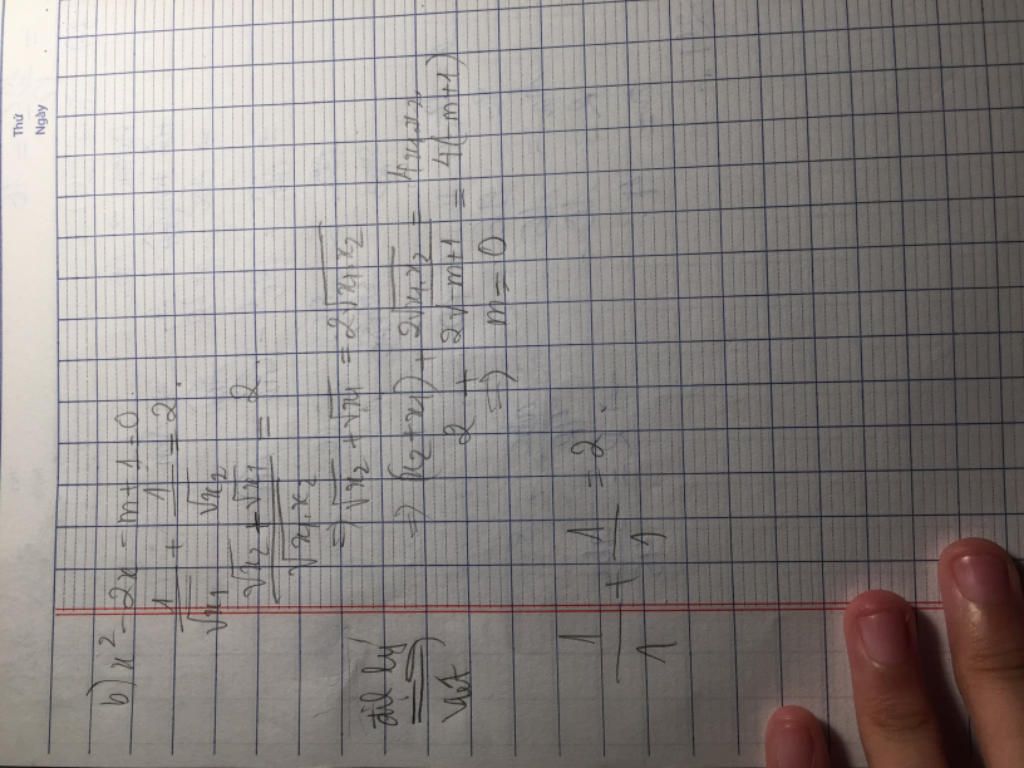 Thứ
Ngày
b) x² - 2x - m + 1 = 0
1/√x₁ + 1/√x₂ = 2.
(√x₂ + √x₁)/√x₁x₂ = 2.
=> √x₂ + √x₁ = 2√x₁x₂
=> (x₂ + x₁) + 2√x₁x₂ = 4x₁x₂
2 + 2√-m+1 = 4(-m+1)
=> m = 0
1/1 + 1/1 = 2.